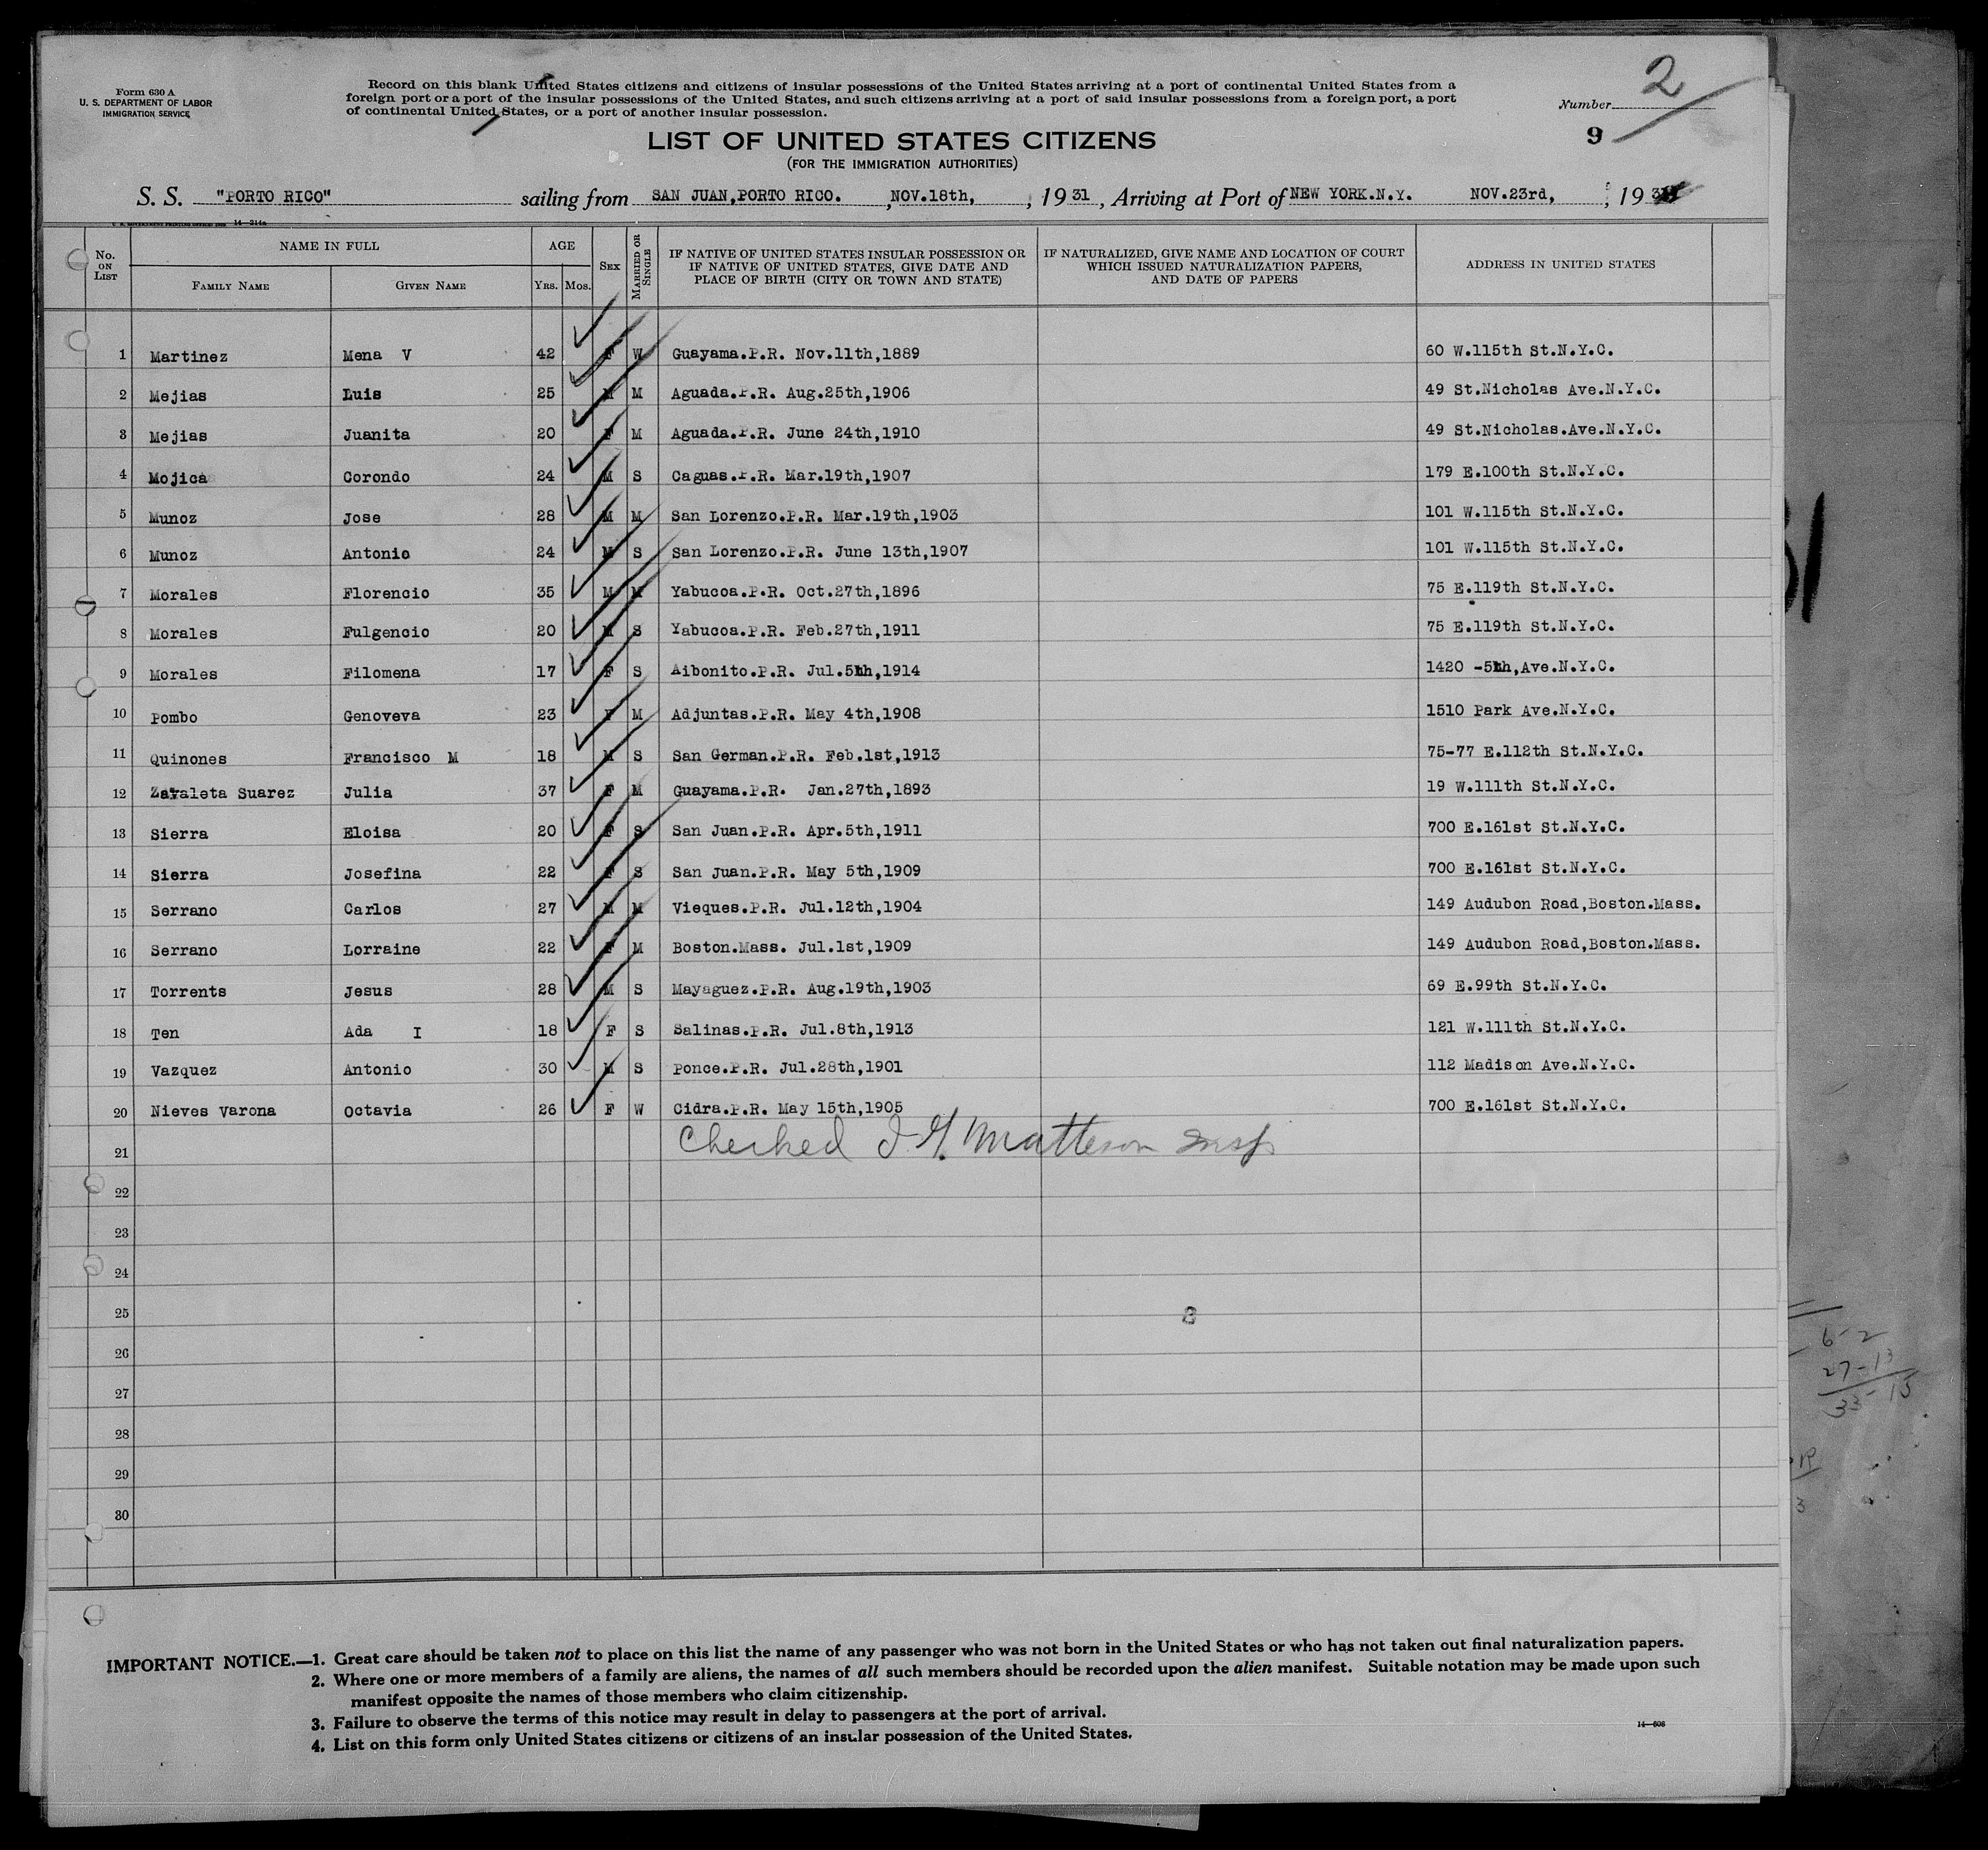 Form 630 A
U. S. DEPARTMENT OF LABOR
IMMIGRATION SERVICE
Record on this blank United States citizens and citizens of insular possessions of the United States arriving at a port of continental United States from a
foreign port or a port of the insular possessions of the United States, and such citizens arriving at a port of said insular possessions from a foreign port, a port
of continental United States, or a port of another insular possession.
Number 2
9
LIST OF UNITED STATES CITIZENS
(FOR THE IMMIGRATION AUTHORITIES)
S. S. "PORTO RICO" sailing from SAN JUAN,PORTO RICO. ,NOV.18th, , 1931, Arriving at Port of NEW YORK.N.Y. NOV.23rd, , 1931
14—214a
No. ON LIST NAME IN FULL FAMILY NAME GIVEN NAME AGE YRS. MOS. SEX MARRIED OR SINGLE IF NATIVE OF UNITED STATES INSULAR POSSESSION OR IF NATIVE OF UNITED STATES, GIVE DATE AND PLACE OF BIRTH (CITY OR TOWN AND STATE) IF NATURALIZED, GIVE NAME AND LOCATION OF COURT WHICH ISSUED NATURALIZATION PAPERS, AND DATE OF PAPERS ADDRESS IN UNITED STATES
1 Martinez Mena V 42 F W Guayama.P.R. Nov.11th,1889 60 W.115th St.N.Y.C.
2 Mejias Luis 25 M M Aguada.P.R. Aug.25th,1906 49 St.Nicholas Ave.N.Y.C.
3 Mejias Juanita 20 F M Aguada.P.R. June 24th,1910 49 St.Nicholas.Ave.N.Y.C.
4 Mojica Corondo 24 M S Caguas.P.R. Mar.19th,1907 179 E.100th St.N.Y.C.
5 Munoz Jose 28 M M San Lorenzo.P.R. Mar.19th,1903 101 W.115th St.N.Y.C.
6 Munoz Antonio 24 M S San Lorenzo.P.R. June 13th,1907 101 W.115th St.N.Y.C.
7 Morales Florencio 35 M M Yabucoa.P.R. Oct.27th,1896 75 E.119th St.N.Y.C.
8 Morales Fulgencio 20 M S Yabucoa.P.R. Feb.27th,1911 75 E.119th St.N.Y.C.
9 Morales Filomena 17 F S Aibonito.P.R. Jul.5th,1914 1420 -5th,Ave.N.Y.C.
10 Pombo Genoveva 23 F M Adjuntas.P.R. May 4th,1908 1510 Park Ave.N.Y.C.
11 Quinones Francisco M 18 M S San German.P.R. Feb.1st,1913 75-77 E.112th St.N.Y.C.
12 Zavaleta Suarez Julia 37 F M Guayama.P.R. Jan.27th,1893 19 W.111th St.N.Y.C.
13 Sierra Eloisa 20 F S San Juan.P.R. Apr.5th,1911 700 E.161st St.N.Y.C.
14 Sierra Josefina 22 F S San Juan.P.R. May 5th,1909 700 E.161st St.N.Y.C.
15 Serrano Carlos 27 M M Vieques.P.R. Jul.12th,1904 149 Audubon Road,Boston.Mass.
16 Serrano Lorraine 22 F M Boston.Mass. Jul.1st,1909 149 Audubon Road,Boston.Mass.
17 Torrents Jesus 28 M S Mayaguez.P.R. Aug.19th,1903 69 E.99th St.N.Y.C.
18 Ten Ada I 18 F S Salinas.P.R. Jul.8th,1913 121 W.111th St.N.Y.C.
19 Vazquez Antonio 30 M S Ponce.P.R. Jul.28th,1901 112 Madison Ave.N.Y.C.
20 Nieves Varona Octavia 26 F W Cidra.P.R. May 15th,1905 700 E.161st St.N.Y.C.
21 Checked Matteson Insp
22
23
24
25 8
26
27
28
29
30
6-2
27-13
33-15
IMPORTANT NOTICE.—1. Great care should be taken not to place on this list the name of any passenger who was not born in the United States or who has not taken out final naturalization papers.
2. Where one or more members of a family are aliens, the names of all such members should be recorded upon the alien manifest. Suitable notation may be made upon such
manifest opposite the names of those members who claim citizenship.
3. Failure to observe the terms of this notice may result in delay to passengers at the port of arrival.
4. List on this form only United States citizens or citizens of an insular possession of the United States.
14—606